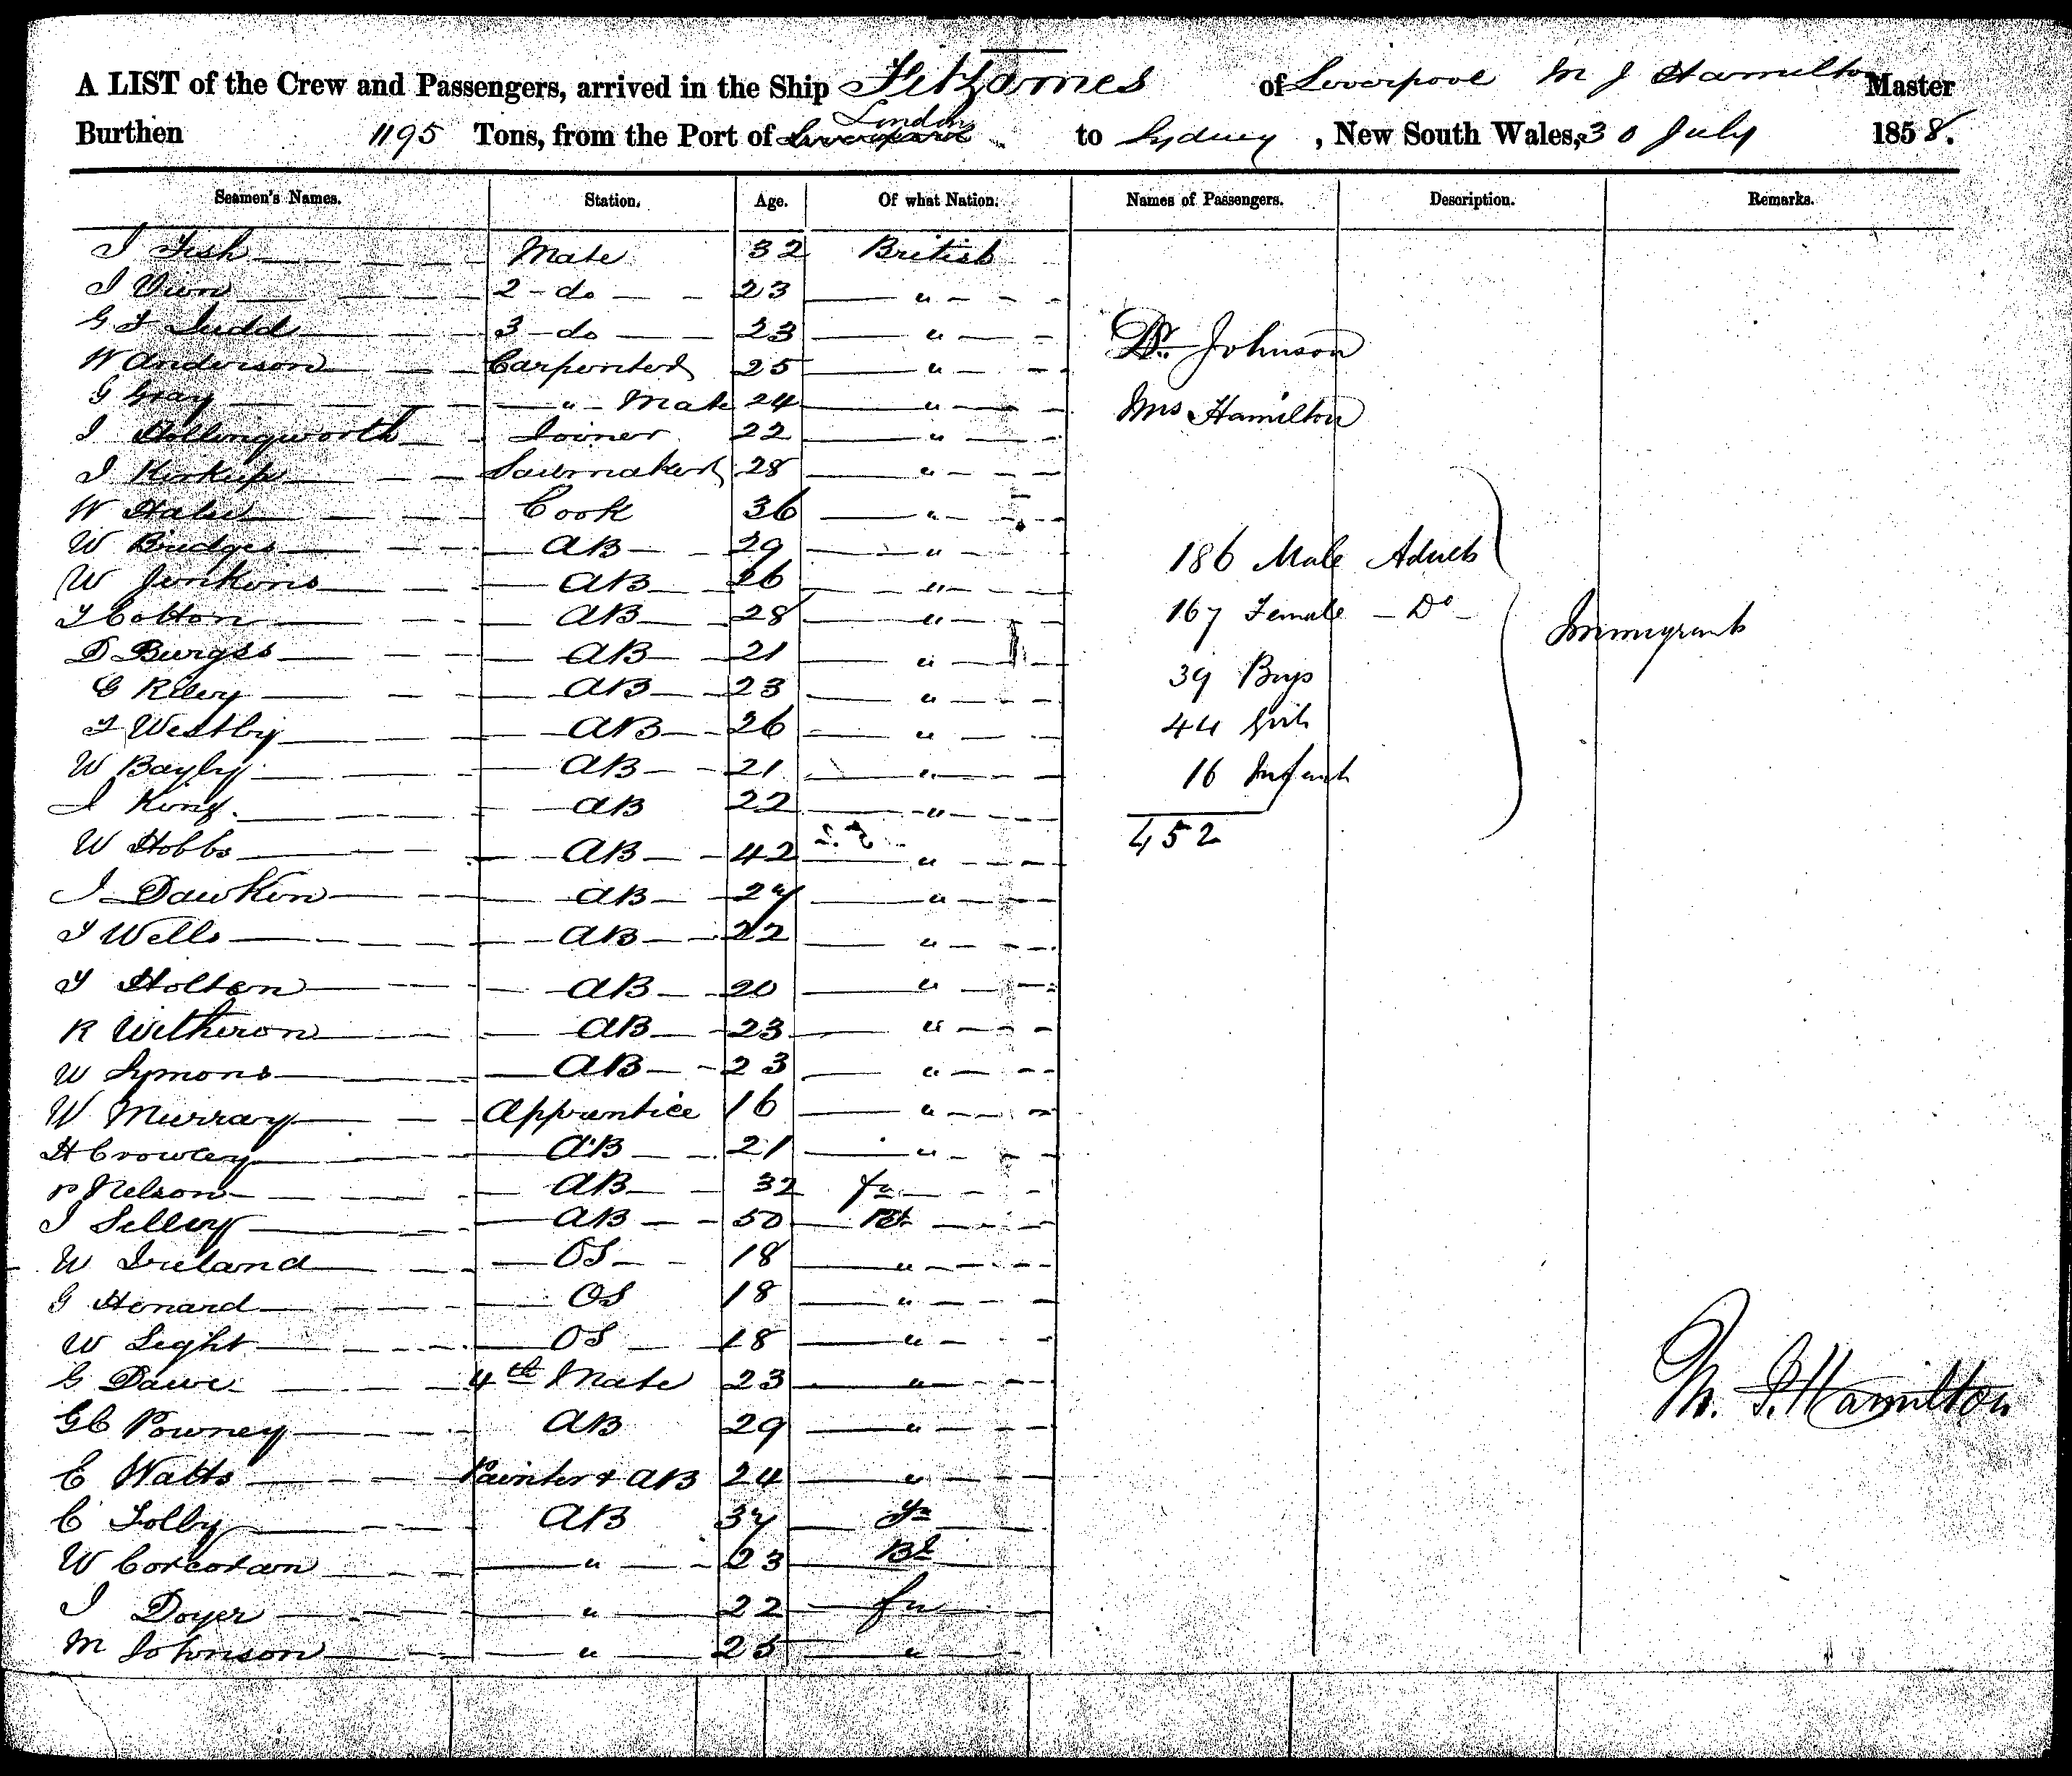 A LIST of the Crew and Passengers, arrived in the Ship FitzJames of Liverpool M J Hamilton Master
Burthen 1195 Tons, from the Port of London to Sydney, New South Wales, 30 July 1858.
Seamen's Names. Station. Age. Of what Nation. Names of Passengers. Description. Remarks.
J Fish Mate 32 British
J 2 - do 23 "
G F Judd 3 - do 23 "
Dr. Johnson
W Anderson Carpenter 25 "
G Gray " Mate 24 "
Mrs Hamilton
J Hollingworth Joiner 22 "
J Kirkup Sailmaker 28 "
W Cook 36 "
W Bridges AB 29 "
186 Male Adults
W Jenkins AB 26 "
T Cotton AB 28 "
167 Female - Do -
Immigrants
D Burgss AB 21 "
G Riley AB 23 "
39 Boys
T Westby AB 26 "
44 Girls
W Bayly AB 21 "
16 Infants
J King AB 22 "
W Hobbs AB 42 "
452
J Dawkon AB 27 "
T Wells AB 22 "
T Holten AB 20 "
R Witheron AB 23 "
W Symons AB 23 "
W Murray Apprentice 16 "
H Crowley AB 21 "
P Nelson AB 32 fn
J Selley AB 50 Bt
W Ireland OS 18 "
G Henard OS 18 "
W Light OS 18 "
G Dawe 4th Mate 23 "
M. J. Hamilton
GC Powney AB 29 "
C Watts Painter & AB 24 "
C Tolby AB 37 fn
W Corcoran " 23 Bt
J Doyer " 22 fn
M Johnson " 25 "